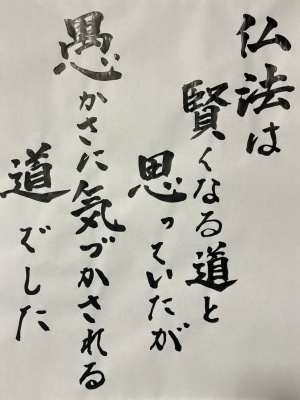 仏法は
賢くなる道と
思っていたが
愚かさに気づかされる
道でした